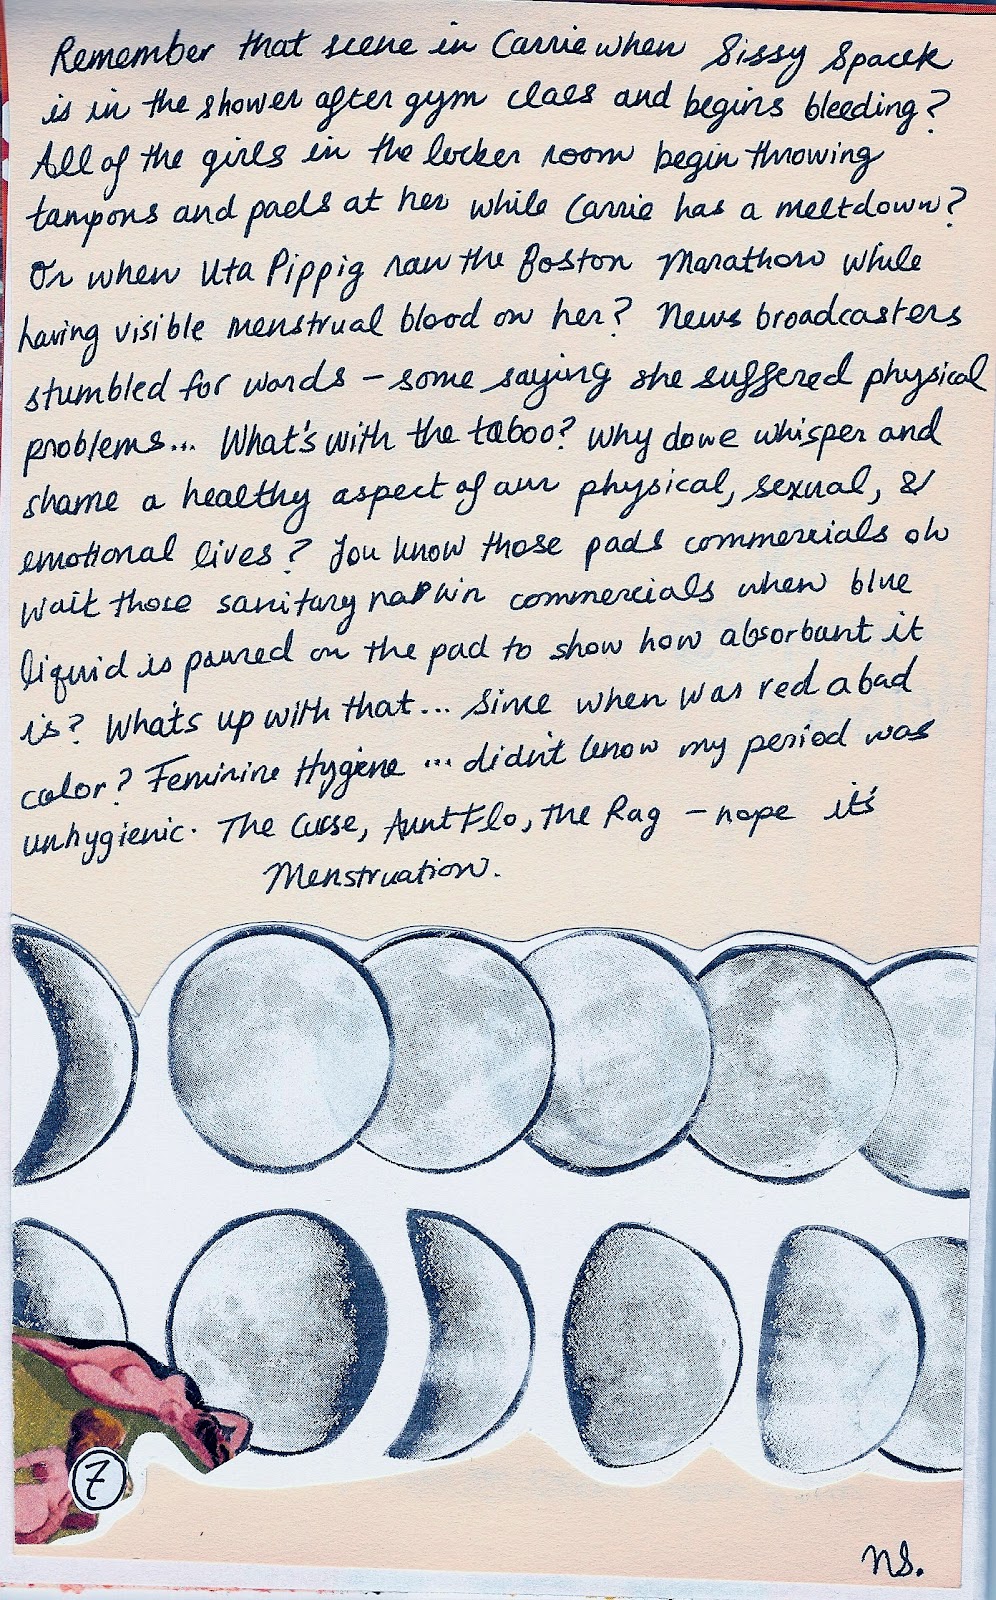 Remember that scene in Carrie when Sissy Spacek
is in the shower after gym class and begins bleeding?
All of the girls in the locker room begin throwing
tampons and pads at her while Carrie has a meltdown?
Or when Uta Pippig ran the Boston Marathon while
having visible menstrual blood on her? News broadcasters
stumbled for words – some saying she suffered physical
problems... What's with the taboo? Why do we whisper and
shame a healthy aspect of our physical, sexual, &
emotional lives? You know those pads commercials oh
wait those sanitary napkin commercials when blue
liquid is poured on the pad to show how absorbant it
is? What's up with that... Since when was red a bad
color? Feminine Hygiene ... didn't know my period was
unhygienic. The Curse, Aunt Flo, The Rag – nope it's
Menstruation.
7
NS.